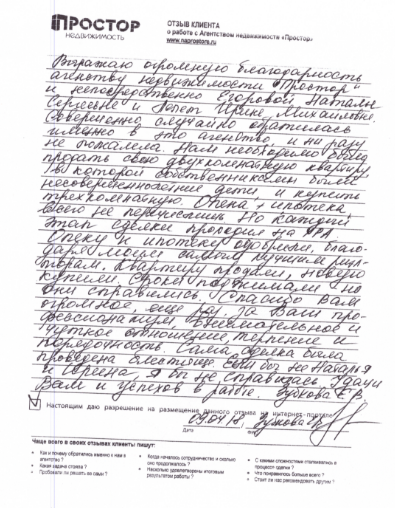 ПРОСТОР
НЕДВИЖИМОСТЬ
ОТЗЫВ КЛИЕНТА
о работе с Агентством недвижимости «Простор»
www.naprostore.ru
Выражаю огромную благодарность
агентству недвижимости "Простор"
и непосредственно Егоровой Наталье
Сергеевне и Ирине Михайловне.
Совершенно случайно обратилась
именно в это агентство, и ни разу
не пожалела. Нам необходимо было
продать свою двухкомнатную квартиру,
в которой собственниками были
несовершеннолетние дети и купить
трехкомнатную. Опека, ипотека
всего не перечислишь. Но каждый
этап сделки проходил на УРА.
Опеку и ипотеку одобрили, благо-
даря моим самым лучшим риэл-
торам. Квартиру продали, новую
купили. Сроки поджимали но
они справились. Спасибо Вам
огромное еще раз. За Ваш про-
фессионализм, внимательное и
чуткое отношение, терпение и
порядочность. Сама сделка была
проведена блестяще. Если бы не Наталья
и Ирина, я бы не справилась. Удачи
Вам и успехов в работе. Зубкова Е.В.
Настоящим даю разрешение на размещение данного отзыва на интернет-портале
09.04.18 Зубкова
Дата
Чаще всего в своих отзывах клиенты пишут:
Как и почему обратились именно к нам в
агентство ?
Какая задача стояла ?
Пробовали ли решать ее сами ?
Когда началось сотрудничество и сколько
оно продолжалось ?
Насколько удовлетворены итоговым
результатом работы ?
С какими сложностями сталкивались в
процессе сделки ?
Что понравилось больше всего ?
Стоит ли нас рекомендовать другим ?